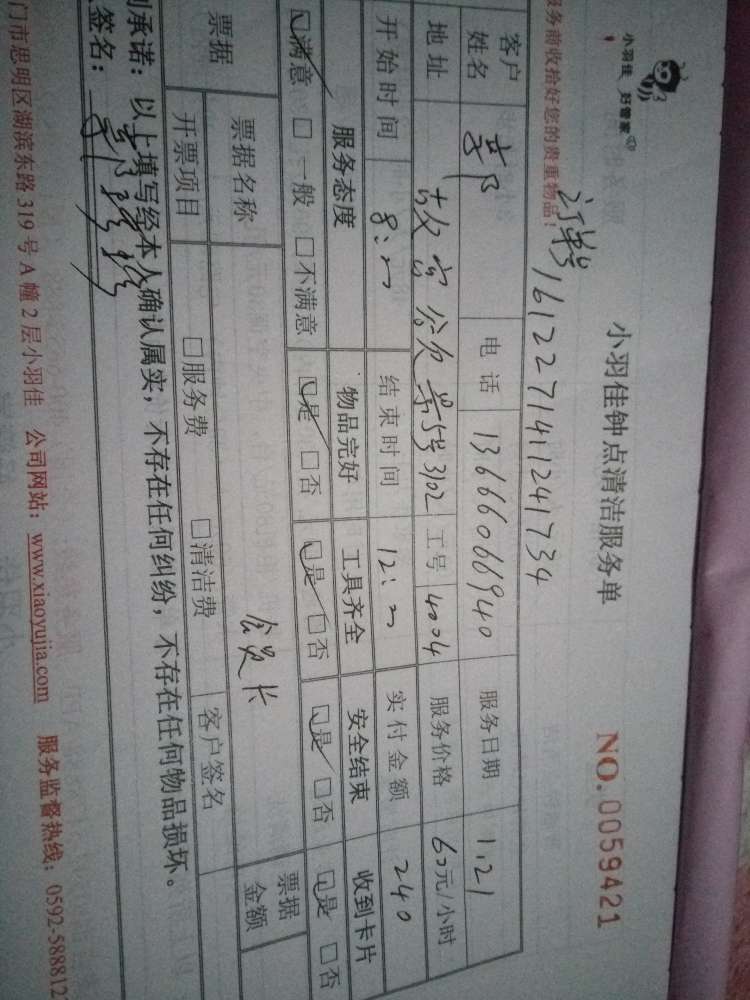 小羽佳 好管家
小羽佳钟点清洁服务单
NO.0059421
服务前收拾好您的贵重物品!
1612271411241734
客户姓名 郭 电话 13666066940 服务日期 1.21
地址 景5号3102 工号 4004 服务价格 60元/小时
开始时间 8:00 结束时间 12:00 实付金额 240
服务态度 物品完好 工具齐全 安全结束 收到卡片
☑满意 □一般 □不满意 ☑是 □否 ☑是 □否 ☑是 □否 ☑是 □否
票据 票据名称 会员卡 票据金额
开票项目 □服务费 □清洁费 客户签名
承诺:以上填写经本人确认属实,不存在任何纠纷,不存在任何物品损坏。
签名:
门市思明区湖滨东路319号A幢2层小羽佳 公司网站:www.xiaoyujia.com 服务监督热线:0592-588812